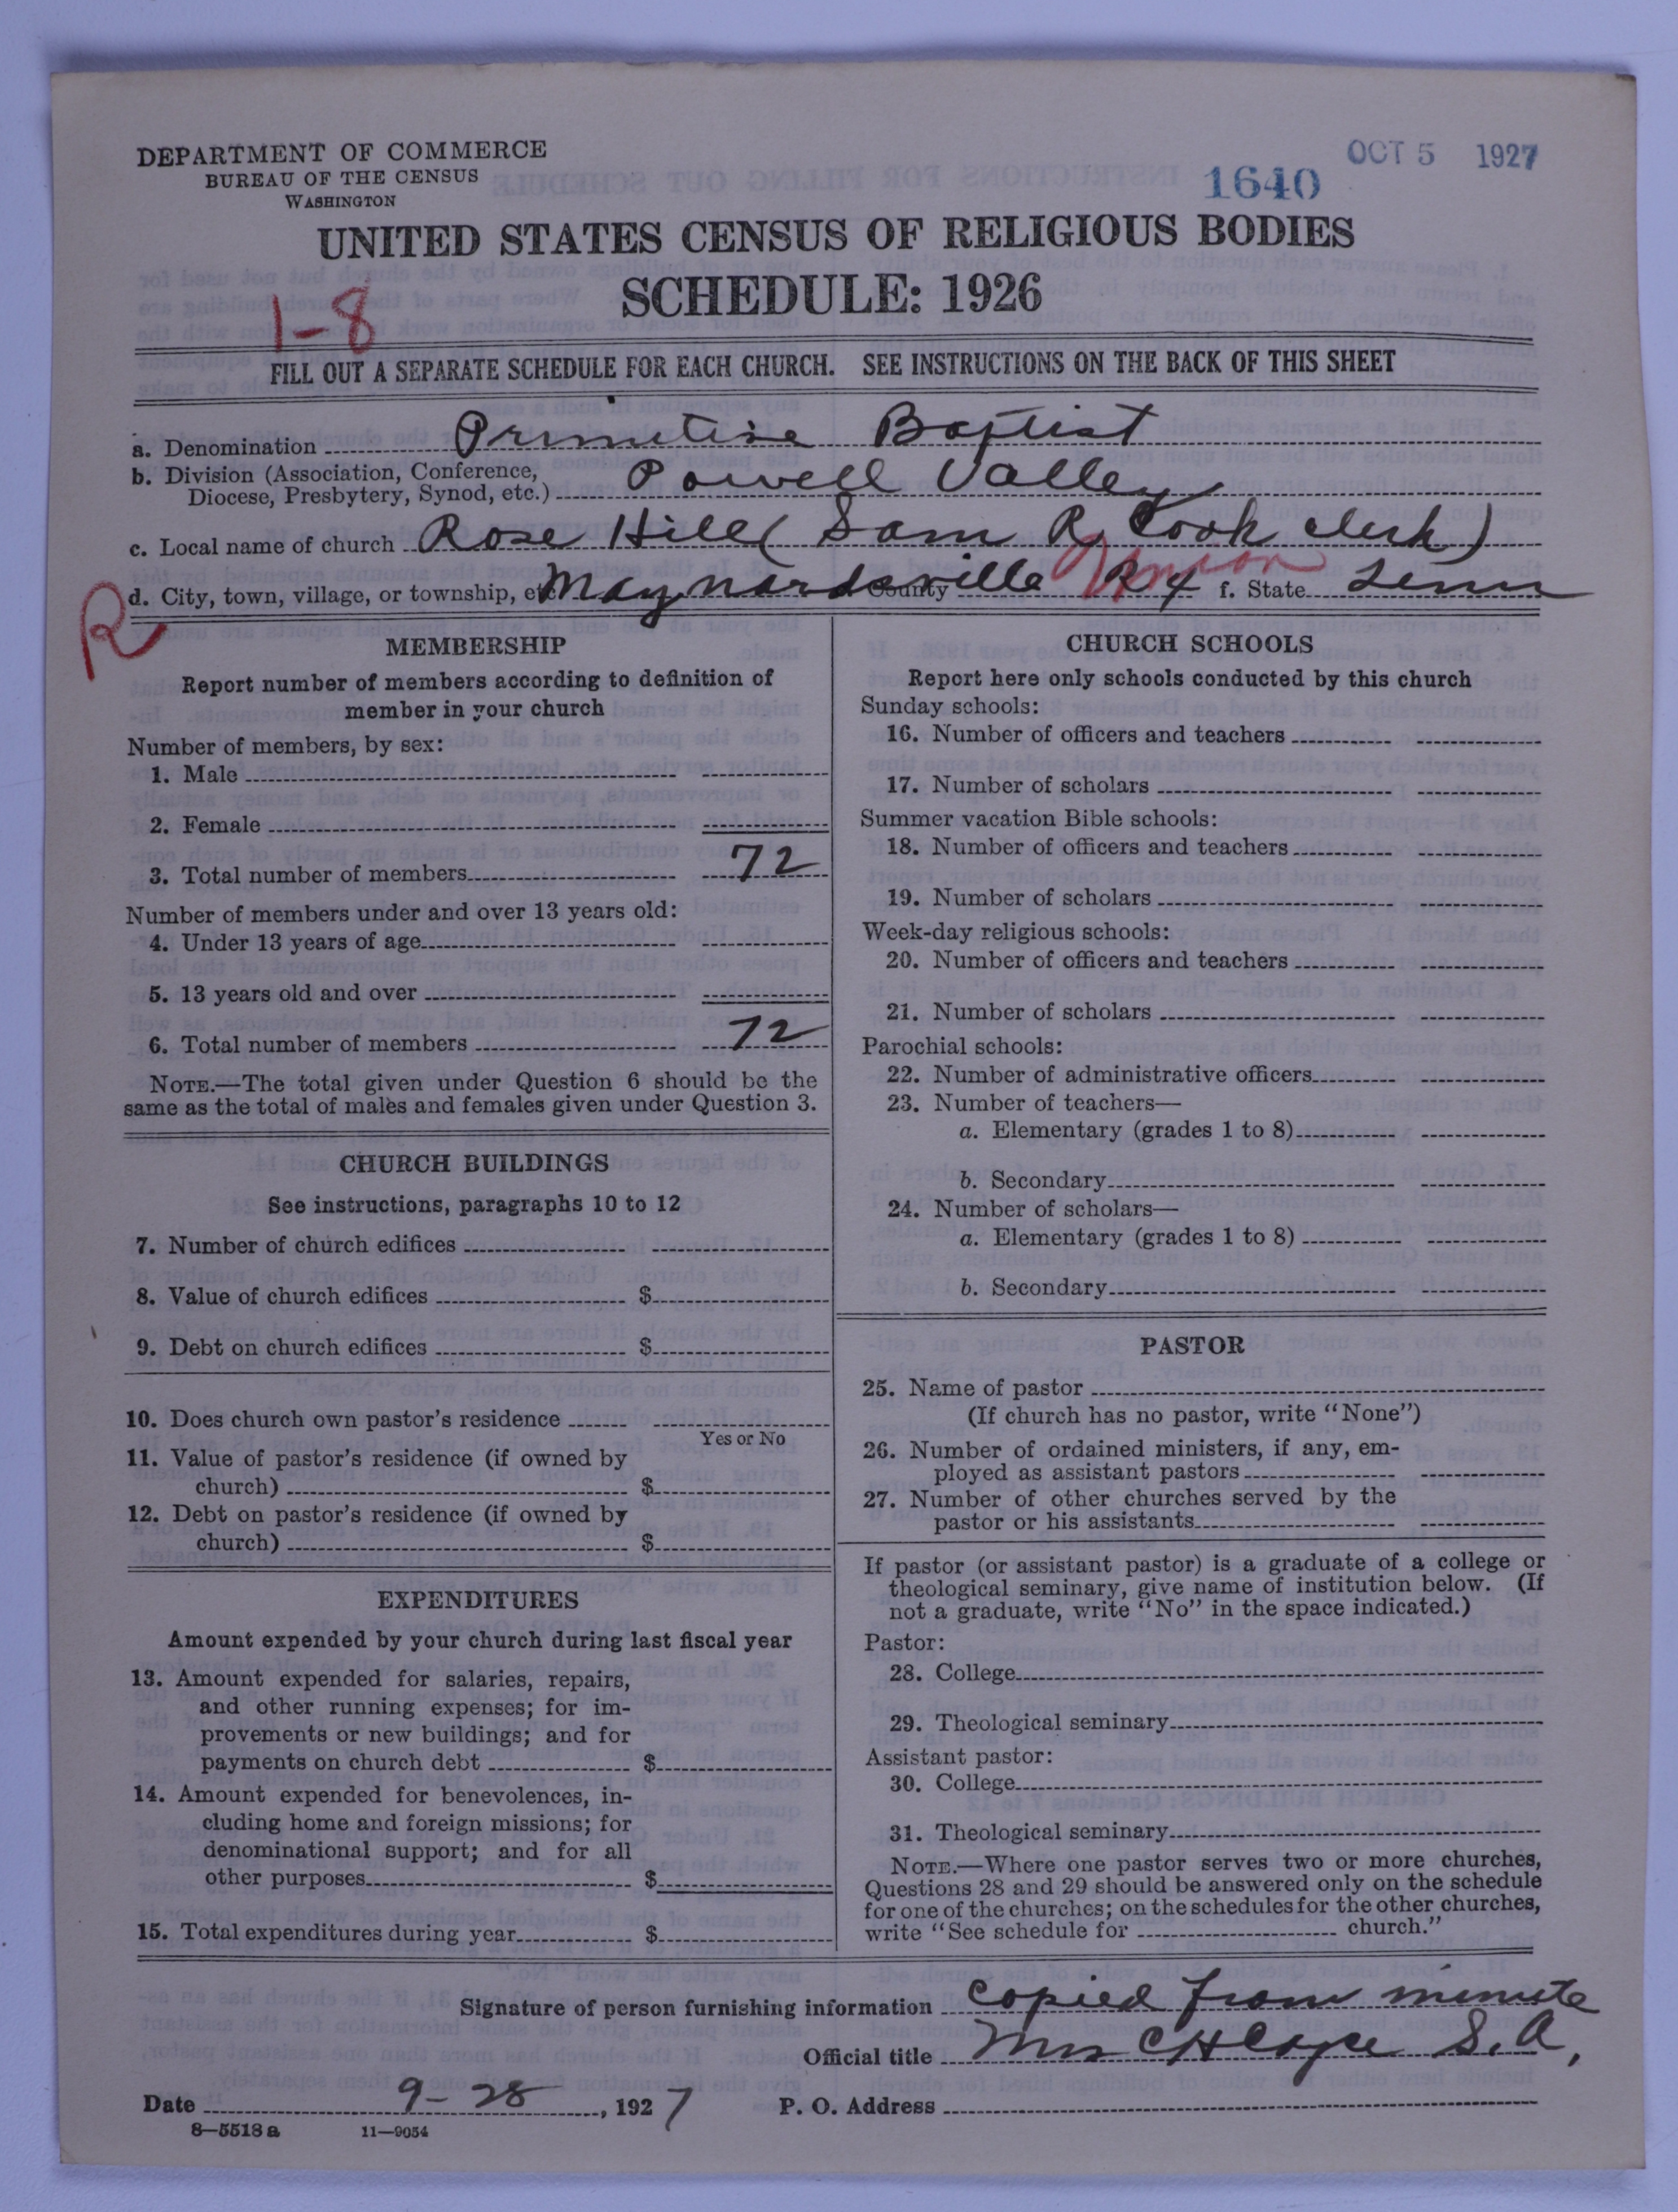 DEPARTMENT OF COMMERCE
BUREAU OF THE CENSUS
WASHINGTON
1640
OCT 5 1927
UNITED STATES CENSUS OF RELIGIOUS BODIES
SCHEDULE: 1926
1-8
FILL OUT A SEPARATE SCHEDULE FOR EACH CHURCH. SEE INSTRUCTIONS ON THE BACK OF THIS SHEET
a. Denomination Primitive Baptist
b. Division (Association, Conference, Diocese, Presbytery, Synod, etc.) Powell Valley
c. Local name of church Rose Hill (Sam R. Cook clerk)
R
d. City, town, village, or township, etc. Maynardsville R4 County Union f. State Tenn
MEMBERSHIP
Report number of members according to definition of
member in your church
Number of members, by sex:
1. Male
2. Female
3. Total number of members 72
Number of members under and over 13 years old:
4. Under 13 years of age
5. 13 years old and over
6. Total number of members 72
NOTE.—The total given under Question 6 should be the
same as the total of males and females given under Question 3.
CHURCH BUILDINGS
See instructions, paragraphs 10 to 12
7. Number of church edifices
8. Value of church edifices $
9. Debt on church edifices $
10. Does church own pastor's residence
Yes or No
11. Value of pastor's residence (if owned by
church) $
12. Debt on pastor's residence (if owned by
church) $
EXPENDITURES
Amount expended by your church during last fiscal year
13. Amount expended for salaries, repairs,
and other running expenses; for im-
provements or new buildings; and for
payments on church debt $
14. Amount expended for benevolences, in-
cluding home and foreign missions; for
denominational support; and for all
other purposes $
15. Total expenditures during year $
CHURCH SCHOOLS
Report here only schools conducted by this church
Sunday schools:
16. Number of officers and teachers
17. Number of scholars
Summer vacation Bible schools:
18. Number of officers and teachers
19. Number of scholars
Week-day religious schools:
20. Number of officers and teachers
21. Number of scholars
Parochial schools:
22. Number of administrative officers
23. Number of teachers—
a. Elementary (grades 1 to 8)
b. Secondary
24. Number of scholars—
a. Elementary (grades 1 to 8)
b. Secondary
PASTOR
25. Name of pastor
(If church has no pastor, write "None")
26. Number of ordained ministers, if any, em-
ployed as assistant pastors
27. Number of other churches served by the
pastor or his assistants
If pastor (or assistant pastor) is a graduate of a college or
theological seminary, give name of institution below. (If
not a graduate, write "No" in the space indicated.)
Pastor:
28. College
29. Theological seminary
Assistant pastor:
30. College
31. Theological seminary
NOTE.—Where one pastor serves two or more churches,
Questions 28 and 29 should be answered only on the schedule
for one of the churches; on the schedules for the other churches,
write "See schedule for church."
Signature of person furnishing information Copied from minute
Official title Mrs C H Cope S. A.
Date 9-28, 1927 P. O. Address
8—5518a 11—9054